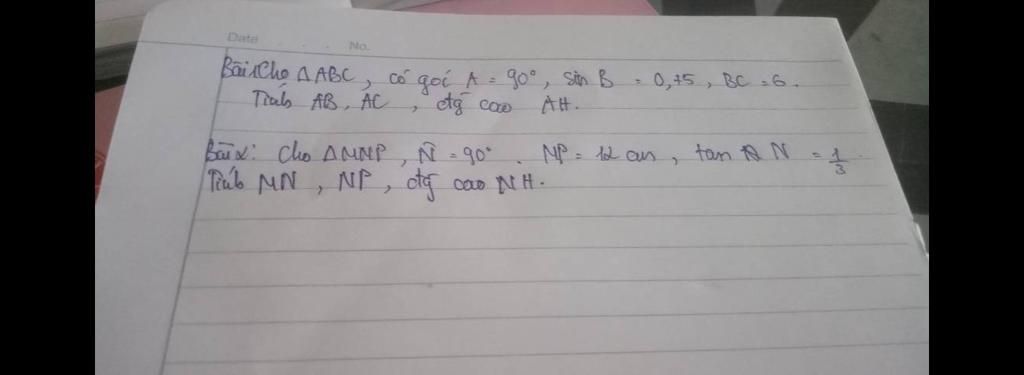 Date . . . No.
Bài 1: Cho ΔABC, có goí A = 90°, sin B = 0,75, BC = 6.
Tính AB, AC, đg cao AH.
Bài 2: Cho ΔMNP, N̂ = 90°. NP = 12 cm, tan N = 1/3.
Tính MN, NP, đg cao NH.